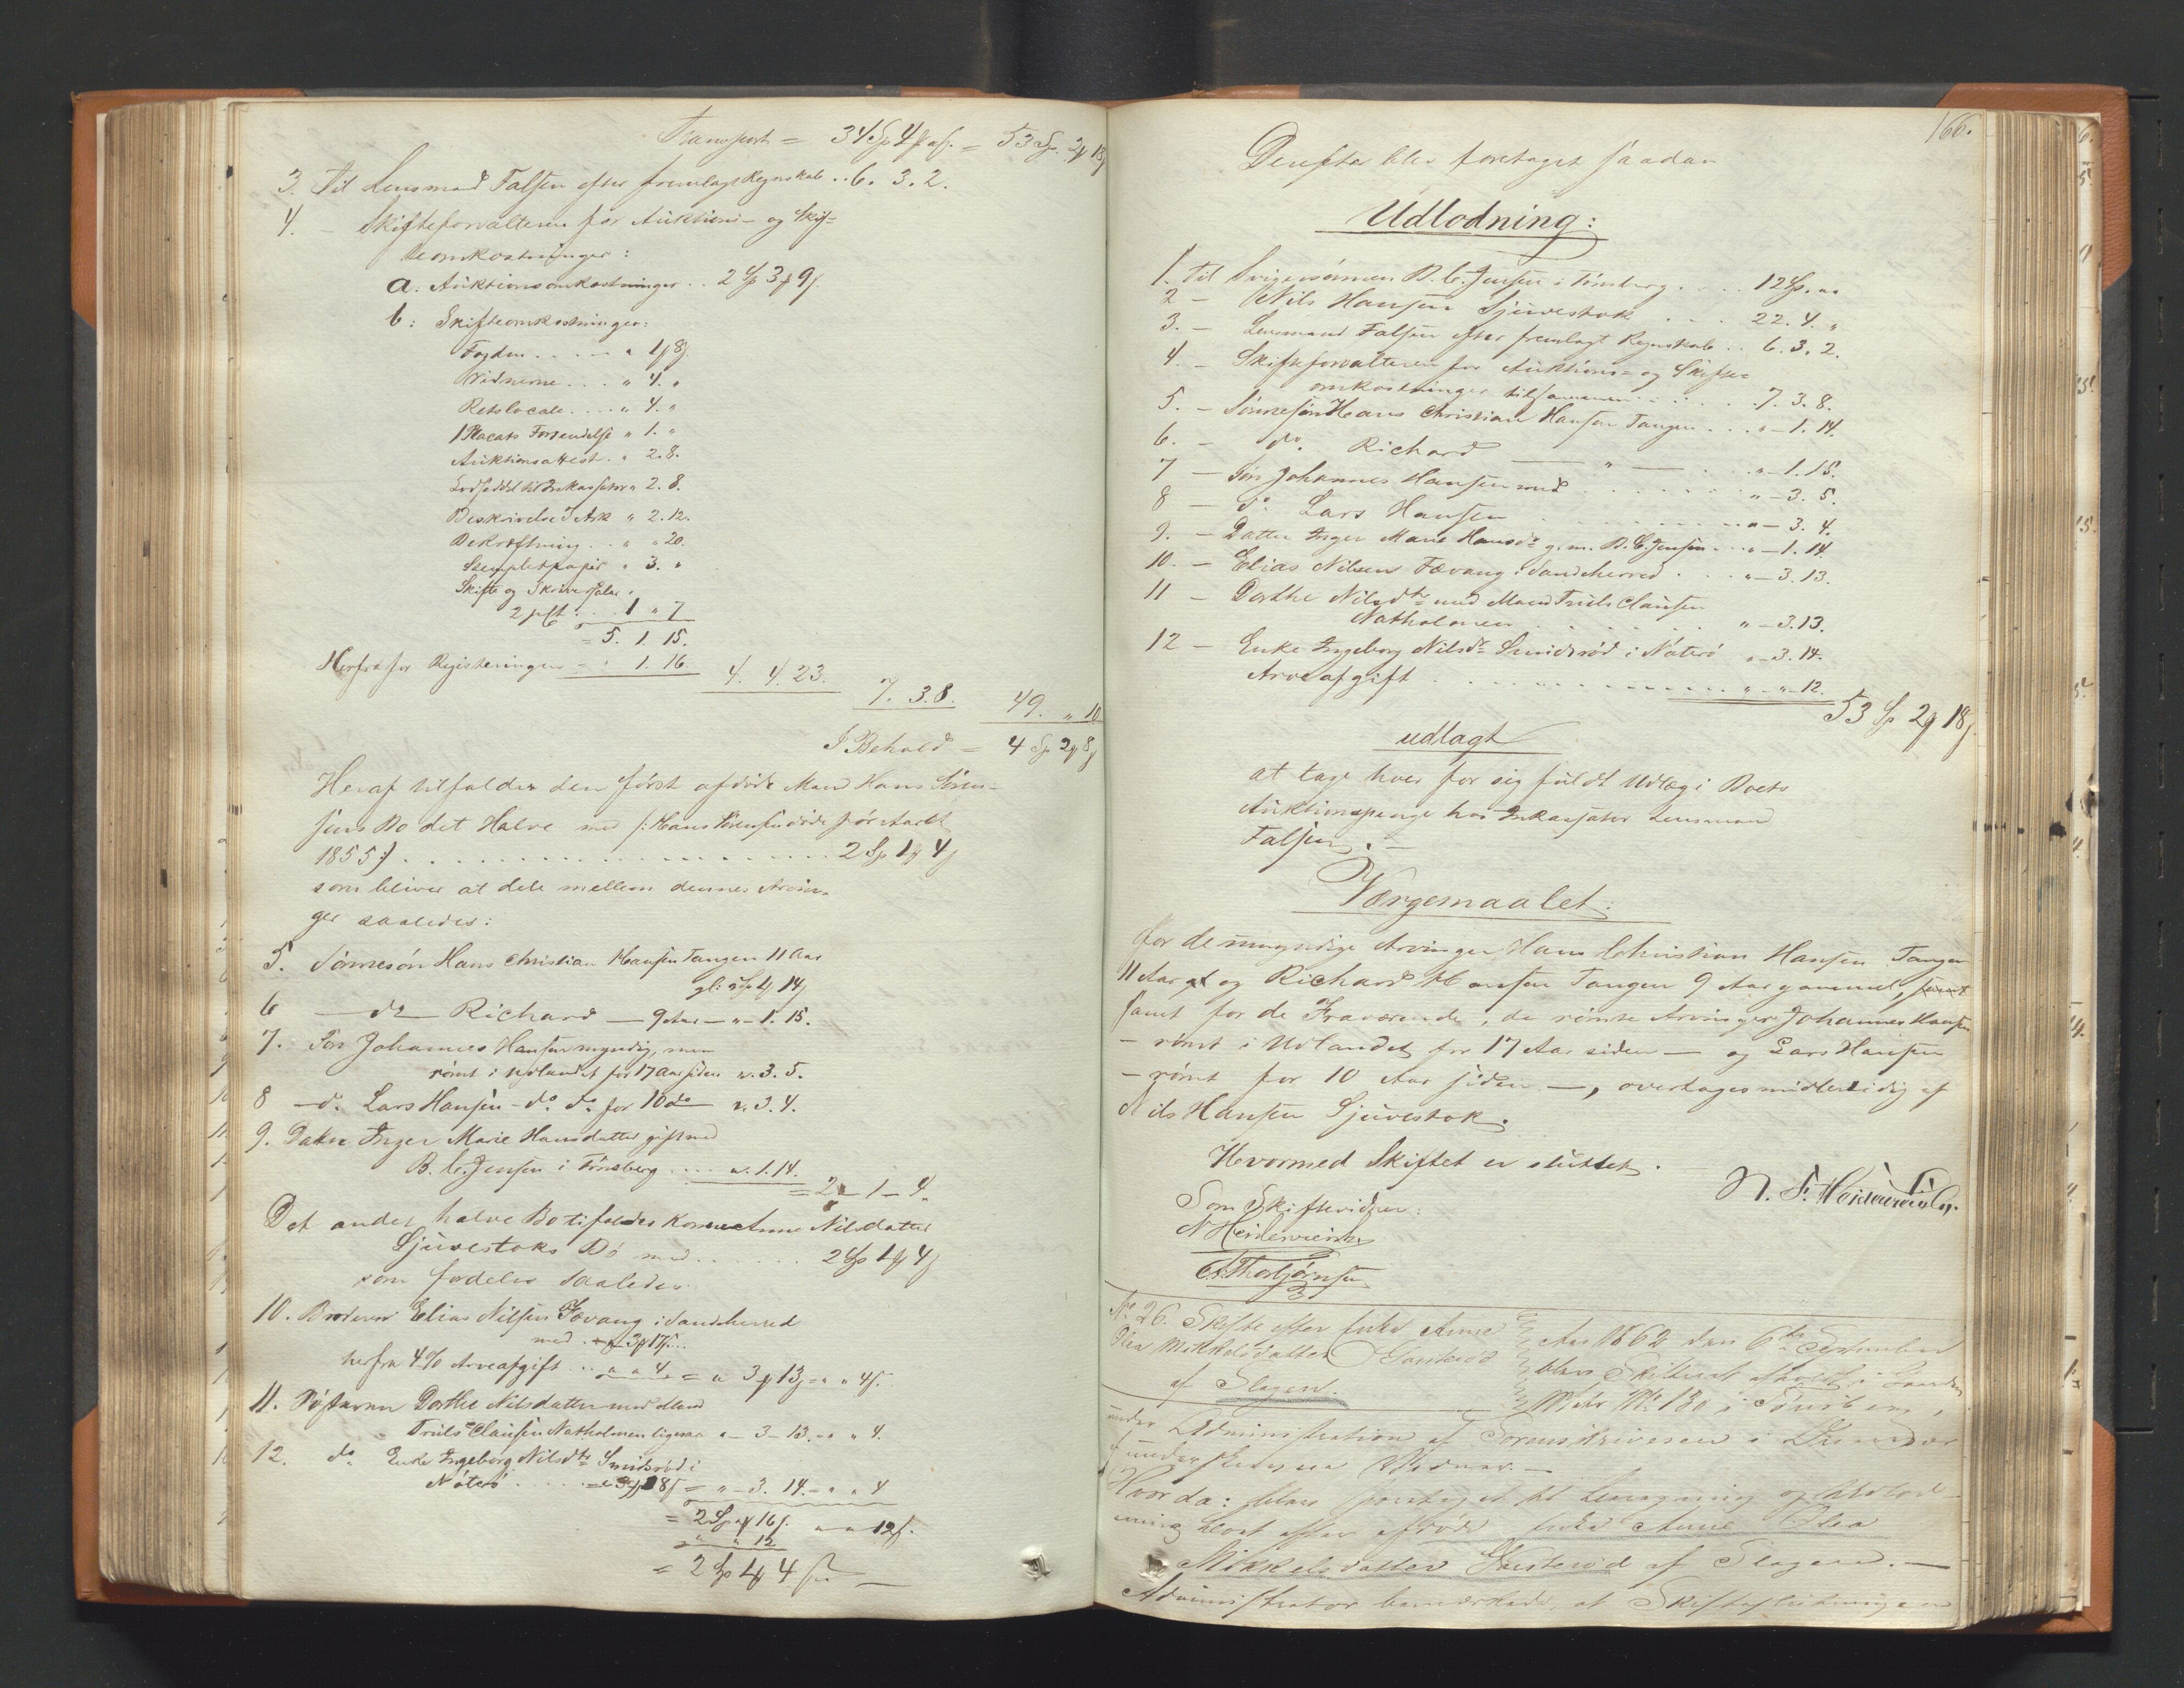 Transport = 34 Sp 4 f „ s. = 53 Sp. 2 f 18 s
3. Til Lensmand Falsen efter fremlagt Regnskab .. 6. 3. 2.
4. – Skifteforvalteren for Auktions- og Skif-
teomkostninger:
a. Auktionsomkostninger .. 2 Sp 3 f 9 s.
b: Skifteomkostninger:
Fogden . . . . „ 1 f 8 s.
Vidnerne . . . „ 4. „
Retslocale . . . . „ 4. „
1 Placats Forsendelse „ 1. „
Auktionsattest . „ 2. 8.
Lodseddel til Inkassator „ 2. 8.
Beskrivelse 7 Ark „ 2. 12.
Bekræftning . . „ „ 20.
Stemplet papir „ 3. „
Skifte og Skriversalar
2 pCt . . . 1 „ 7
= 5. 1. 15.
Herfra for Registeringen = „ 1. 16. 4. 4. 23.
7. 3. 8. 49. „ 10
I Behold = 4 Sp 2 f 8 s
Heraf tilfalder den först afdöde Mand Hans Sören-
sens Bo det Halve med /: Hans Sörensen döde för Aaret
1855 :/ . . . . . . . . 2 Sp 1 f 4 s
som bliver at dele mellem dennes Arvin-
ger saaledes:
5. Sönnesön Hans Christian Hansen Tangen 11 Aar
gl: „ Sp 1 f 14 s
6 — do — Richard — 9 Aar — „ – 1. 15.
7. Sön Johannes Hansen myndig, men
römt i Udlandet for 17 Aar siden „. 3. 5.
8 – do Lars Hansen – do do for 10 do – „. 3. 4.
9. Datter Inger Marie Hansdatter gift med
B. C. Jensen i Tönsberg . . . . „. 1. 14.
= 2 – 1 – 4.
Det andet halve Bo tilfalder Konen Anne Nilsdatter
Sjuvestoks Bo med . . . . . . 2 Sp 1 f 4 s
som fordeles saaledes
10. Broderen Elias Nilsen Fævang i Sandeherred
med . „ „ 3 f 17 s. . .
herfra 4% Arveafgift . . . „ „ 4. = „ 3 f 13 s = „ „ 4 s.
11. Sösteren Dorthe Nilsdatter med Mand
Truls Clausen Natholmen ligesaa „ – 3 – 13. – „ „ 4.
12. do Enke Ingeborg Nilsdtr Smidsröd i
Nöterö . . . . . – „ 3 f 18 s = „ – 3. 14. – „ „ 4
= 2 Sp „ f 16 s. „ „ 12 s.
„ „ 12
= 2 Sp 1 f 4 s
166.
Derefter blev foretaget saadan
Udlodning:
1. Til Svigersönnen B. C. Jensen i Tönsberg . . . . 12 Sp. „ „
2 – Nils Hansen Sjuvestok . . . . 22. 4. „
3. – Lensmand Falsen efter fremlagt Regnskab . . 6. 3. 2.
4 – Skifteforvalteren for Auktions- og Skifte-
omkostninger tilsammen . . . . . 7. 3. 8.
5. – Sönnesön Hans Christian Hansen Tangen . . . „ – 1. 14.
6. – do. Richard — „ — . . „ – 1. 15.
7 – Sön Johannes Hansen med . . . . . . „ – 3. 5.
8 – do Lars Hansen . . . . . . . . „ – 3. 4.
9. – Datter Inger Marie Hansdr g. m. B. C. Jensen . . „ – 1. 14.
10. – Elias Nilsen Fævang i Sandeherred . . . . „ – 3. 13.
11 – Dorthe Nilsdtr med Mand Truls Clausen
Natholmen . . . . . . . . „ – 3. 13.
12 – Enke Ingeborg Nilsdr Smidsröd i Nöterö „ – 3. 14.
Arveafgift . . . . . . . . . . . „ – „ – 12.
53 Sp 2 f 18 s
udlagt
at tage hver for sig fuldt Udlæg i Boets
Auktionspenge hos Inkassator Lensmand
Falsen. –
Værgemaalet:
for de umyndige Arvinger Hans Christian Hansen Tangen
11 Aar gl og Richard Hansen Tangen 9 Aar gammel, samt
samt for de Fraværende, de römte Arvinger Johannes Hansen
– römt i Udlandet for 17 Aar siden — og Lars Hansen
– römt for 10 Aar siden —, overtages midlertidig af
Nils Hansen Sjuvestok.
Hvormed Skiftet er sluttet.
Som Skiftevidner:
N Heidenreich
A. Thorbjörnsen
No 26. Skifte efter Enke Anne
Olea Mikkelsdatter Gauteröd
af Slagen.
Aar 1862 den 6te September
blev Skifteret afholdt i
Matr No 130 i Tönsberg,
under Administration af Sorenskriveren i
underskrevne Vidner. –
Hvorda: blev foretaget til Lovregning og Udlod-
ning Boet efter afdöde Enke Anne Olea
Mikkelsdatter Gauteröd af Slagen. —
Administrator bemærkede, at Skifteslutningen